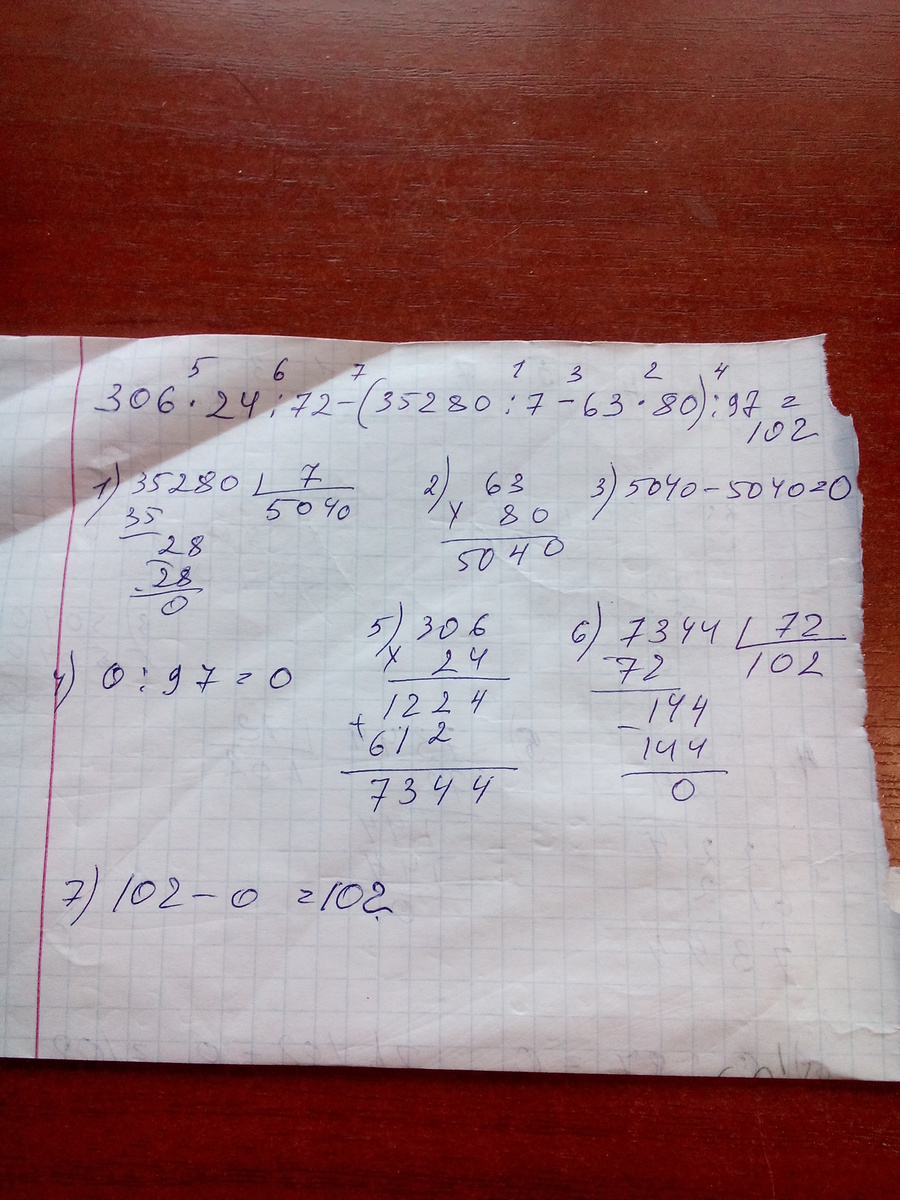 5 6 7 1 3 2 4
306 · 24 : 72 - (35280 : 7 - 63 · 80) : 97 =
102
1) 35280 7
35 5040
28
28
0
2) 63
x 80
5040
3) 5040 - 5040 = 0
4) 0 : 97 = 0
5) 306
x 24
1224
+
612
7344
6) 7344 72
72 102
- 144
144
0
7) 102 - 0 = 102